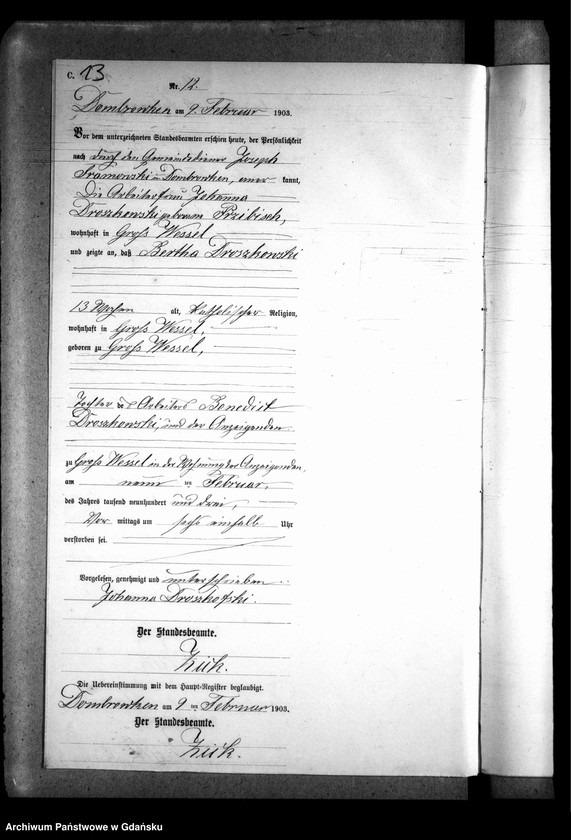 C. 13
Nr. 12.
Dombrowken am 9. Februar 1903.
Vor dem unterzeichneten Standesbeamten erschien heute, der Persönlichkeit
nach durch den Gemeindediener Joseph
in Dombrowken, kannt,
Die Arbeiterfrau Johanna
Droszkowski geborene Przibisch,
wohnhaft in Groß Wessel
und zeigte an, daß Bertha Droszkowski
13 Wochen alt, katholischer Religion,
wohnhaft in Groß Wessel,
geboren zu Groß Wessel,
Tochter des Arbeiters Benedict
Droszkowski, und der Anzeigenden
zu Groß Wessel in der Wohnung der Anzeigenden,
am neun ten Februar,
des Jahres tausend neunhundert und drei,
Vor mittags um sechs einhalb Uhr
verstorben sei.
Vorgelesen, genehmigt und unterschrieben
Johanna Droszkofski.
Der Standesbeamte.
Zük.
Die Uebereinstimmung mit dem Haupt-Register beglaubigt.
Dombrowken am 9 ten Februar 1903.
Der Standesbeamte.
Zük.
Archiwum Państwowe w Gdańsku